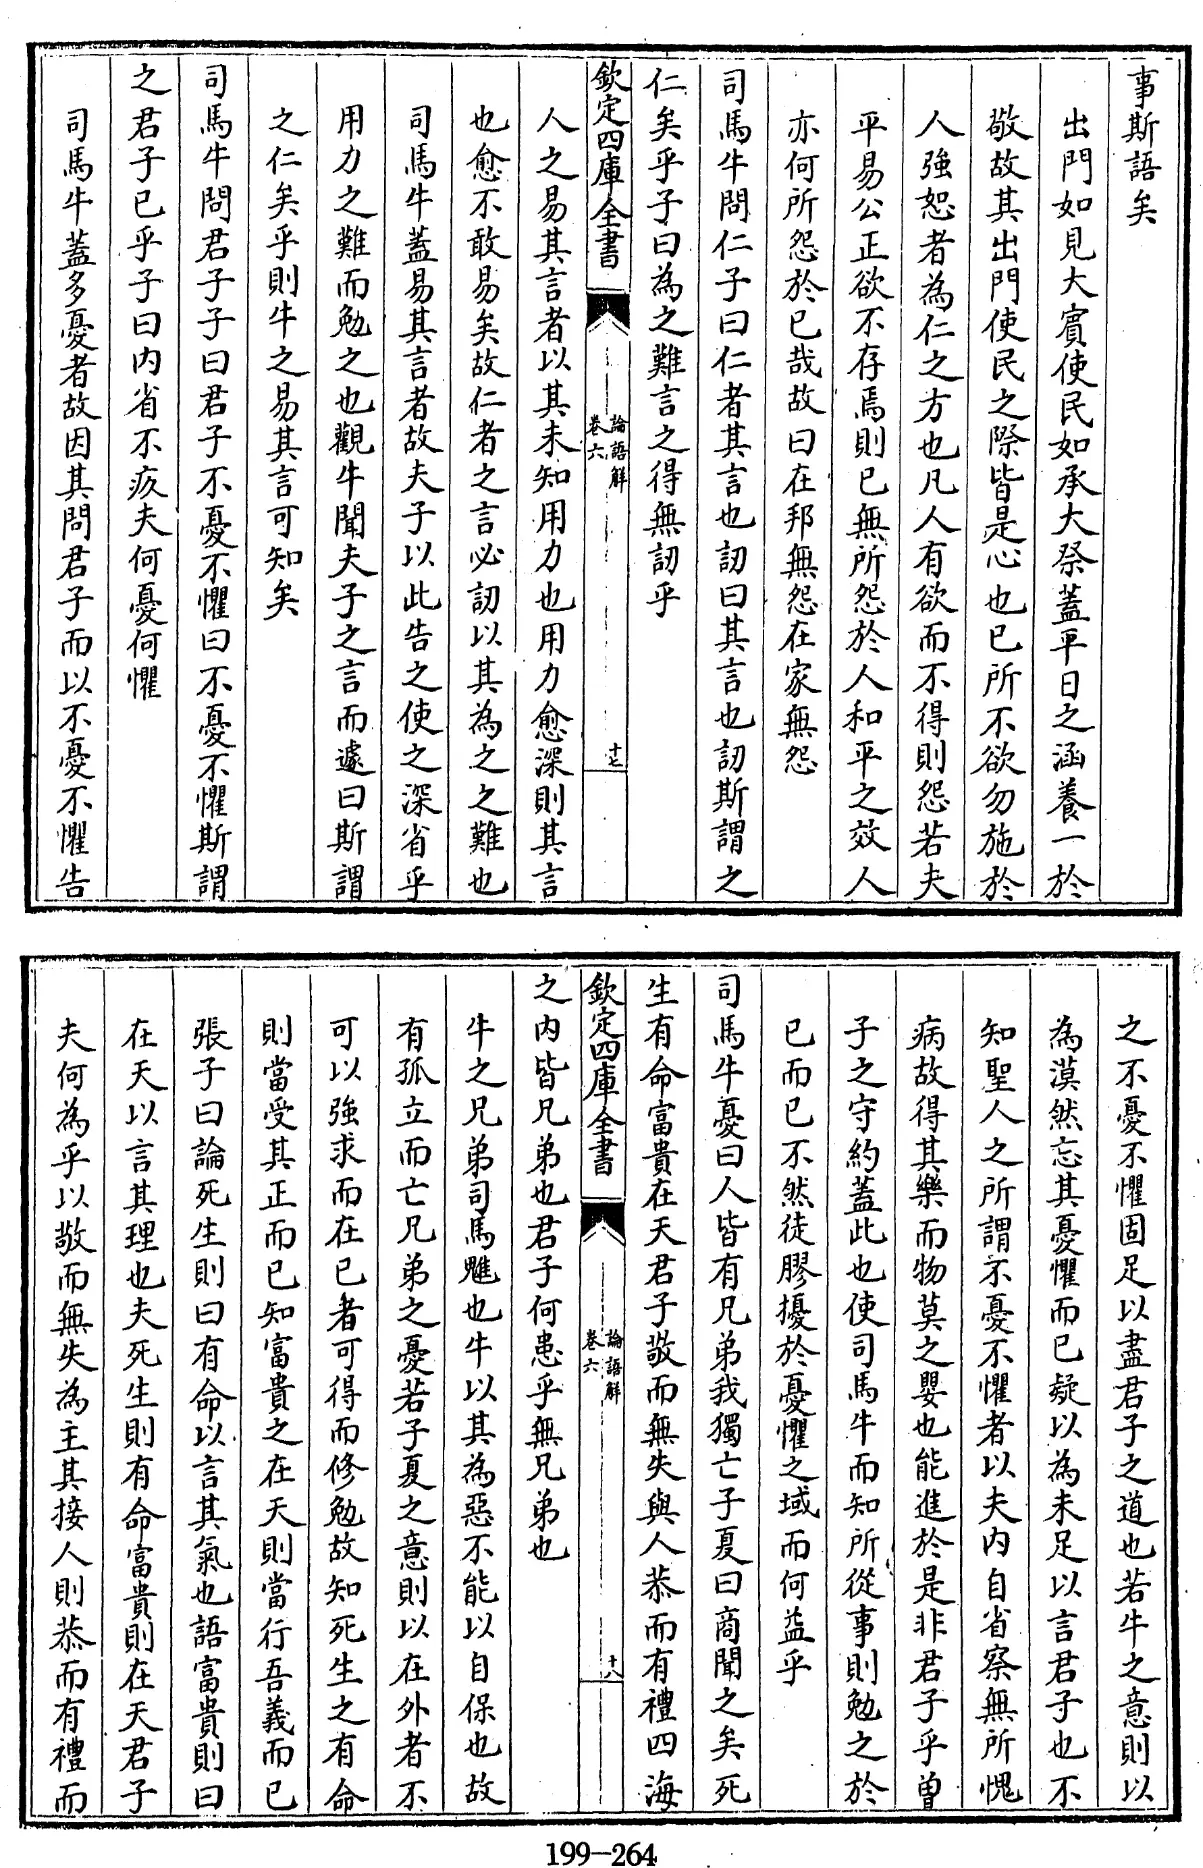 事斯語矣
出門如見大賓使民如承大祭蓋平日之涵養一於
敬故其出門使民之際皆是心也已所不欲勿施於
人強恕者為仁之方也凡人有欲而不得則怨若夫
平易公正欲不存焉則已無所怨於人和平之效人
亦何所怨於已哉故曰在邦無怨在家無怨
司馬牛問仁子曰仁者其言也訒曰其言也訒斯謂之
仁矣乎子曰為之難言之得無訒乎
欽定四庫全書
論語解
卷六
十七
人之易其言者以其未知用力也用力愈深則其言
也愈不敢易矣故仁者之言必訒以其為之之難也
司馬牛蓋易其言者故夫子以此告之使之深省乎
用力之難而勉之也觀牛聞夫子之言而遽曰斯謂
之仁矣乎則牛之易其言可知矣
司馬牛問君子子曰君子不憂不懼曰不憂不懼斯謂
之君子已乎子曰內省不疚夫何憂何懼
司馬牛蓋多憂者故因其問君子而以不憂不懼告
之不憂不懼固足以盡君子之道也若牛之意則以
為漠然忘其憂懼而已疑以為未足以言君子也不
知聖人之所謂不憂不懼者以夫內自省察無所愧
病故得其樂而物莫之嬰也能進於是非君子乎曾
子之守約蓋此也使司馬牛而知所從事則勉之於
已而已不然徒膠擾於憂懼之域而何益乎
司馬牛憂曰人皆有兄弟我獨亡子夏曰商聞之矣死
生有命富貴在天君子敬而無失與人恭而有禮四海
欽定四庫全書
論語解
卷六
十八
之內皆兄弟也君子何患乎無兄弟也
牛之兄弟司馬魋也牛以其為惡不能以自保也故
有孤立而亡兄弟之憂若子夏之意則以在外者不
可以強求而在已者可得而修勉故知死生之有命
則當受其正而已知富貴之在天則當行吾義而已
張子曰論死生則曰有命以言其氣也語富貴則曰
在天以言其理也夫死生則有命富貴則在天君子
夫何為乎以敬而無失為主其接人則恭而有禮而
199-264